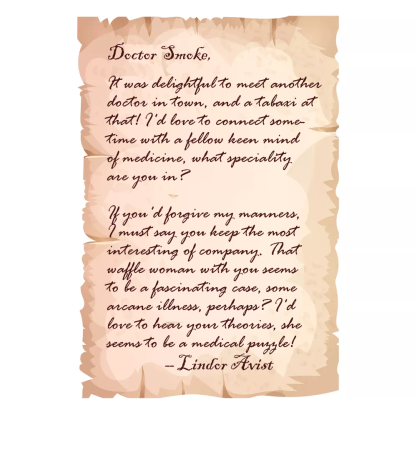 Doctor Smoke,
It was delightful to meet another
doctor in town, and a tabaxi at
that! I'd love to connect some-
time with a fellow keen mind
of medicine, what speciality
are you in?
If you'd forgive my manners,
I must say you keep the most
interesting of company. That
waffle woman with you seems
to be a fascinating case, some
arcane illness, perhaps? I'd
love to hear your theories, she
seems to be a medical puzzle!
– Lindor Avist